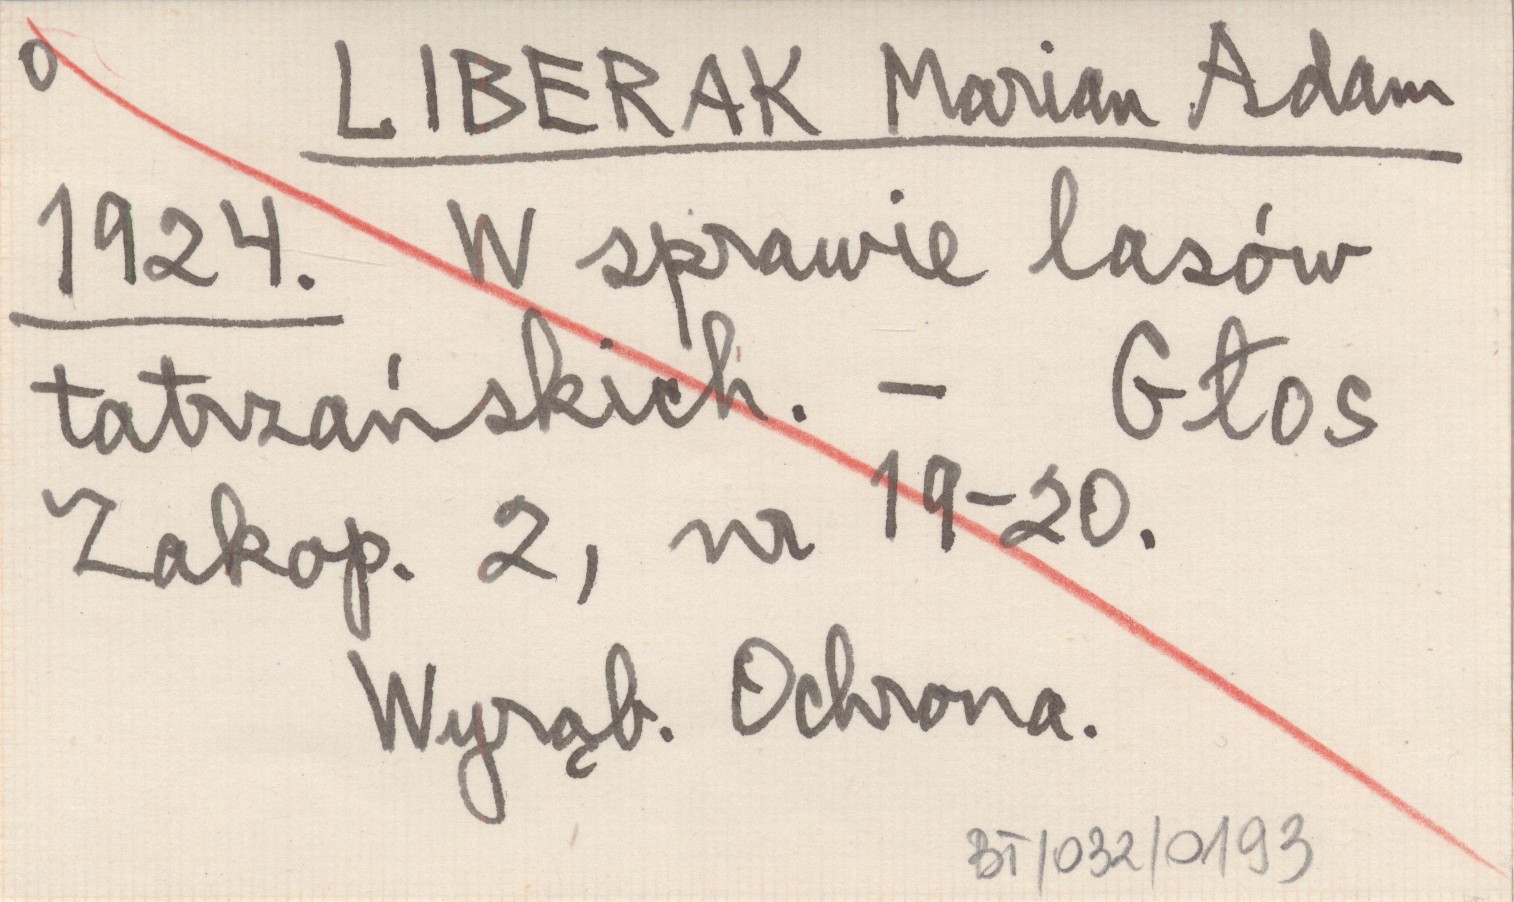 o LIBERAK Marian Adam
1924. W sprawie lasów
tatrzańskich. – Głos
Zakop. 2, nr 19-20.
Wyrąb. Ochrona.
BT/032/0193